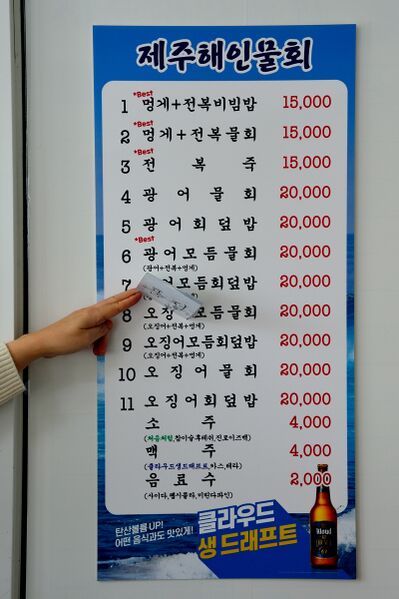 제주해인물회
*Best
1 멍게+전복비빔밥 15,000
*Best
2 멍게+전복물회 15,000
*Best
3 전복죽 15,000
4 광어물회 20,000
5 광어회덮밥 20,000
*Best
6 광어모듬물회 20,000
(광어+전복+멍게)
7 어모듬회덮밥 20,000
8 오징 모듬물회 20,000
(오징어+전복+멍게)
9 오징어모듬회덮밥 20,000
(오징어+전복+멍게)
10 오징어물회 20,000
11 오징어회덮밥 20,000
소주 4,000
(처음처럼,참이슬후레쉬,진로이즈백)
맥주 4,000
(클라우드생드래프트,카스,테라)
음료수 2,000
(사이다,펩시콜라,미린다파인)
탄산볼륨UP!
어떤 음식과도 맛있게!
클라우드
생 드래프트